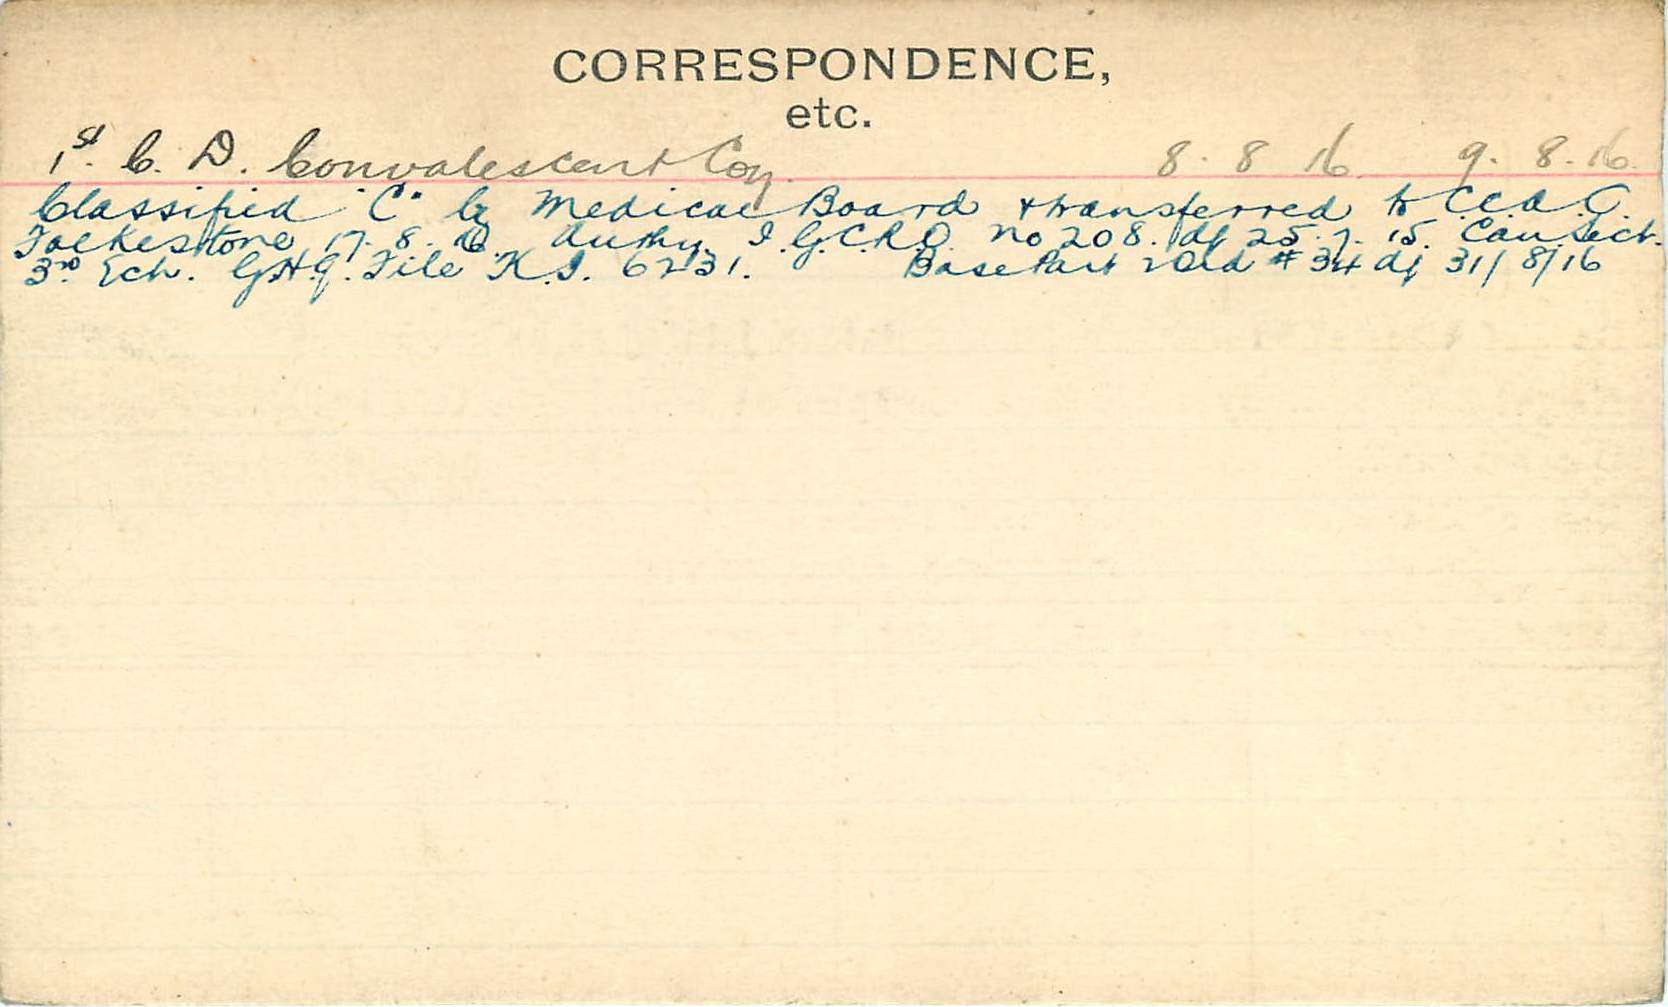 CORRESPONDENCE,
etc.
1st. C. D. Convalescent Coy. 8. 8 16 9. 8. 16.
Classified "C" by Medical Board & transferred to C.C.A.C.
Folkestone 17. 8. 16 Authy. I.G.C.R.O. No 208. df 25. 7. 15. Can. Sect.
3rd Ech. G.H.Q. File K.I. 6231. Base Part 2 Ord # 34 df 31/8/16